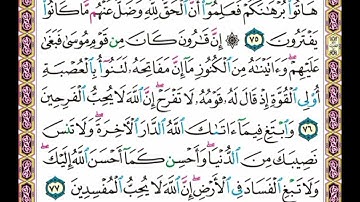 هَاتُوا۟ بُرْهَـٰنَكُمْ فَعَلِمُوٓا۟ أَنَّ ٱلْحَقَّ لِلَّهِ وَضَلَّ عَنْهُم مَّا كَانُوا۟
يَفْتَرُونَ ٧٥ ۞ إِنَّ قَـٰرُونَ كَانَ مِن قَوْمِ مُوسَىٰ فَبَغَىٰ
عَلَيْهِمْ ۖ وَءَاتَيْنَـٰهُ مِنَ ٱلْكُنُوزِ مَآ إِنَّ مَفَاتِحَهُۥ لَتَنُوٓأُ بِٱلْعُصْبَةِ
أُو۟لِى ٱلْقُوَّةِ إِذْ قَالَ لَهُۥ قَوْمُهُۥ لَا تَفْرَحْ ۖ إِنَّ ٱللَّهَ لَا يُحِبُّ ٱلْفَرِحِينَ
٧٦ وَٱبْتَغِ فِيمَآ ءَاتَىٰكَ ٱللَّهُ ٱلدَّارَ ٱلْـَٔاخِرَةَ ۖ وَلَا تَنسَ
نَصِيبَكَ مِنَ ٱلدُّنْيَا ۖ وَأَحْسِن كَمَآ أَحْسَنَ ٱللَّهُ إِلَيْكَ ۖ
وَلَا تَبْغِ ٱلْفَسَادَ فِى ٱلْأَرْضِ ۖ إِنَّ ٱللَّهَ لَا يُحِبُّ ٱلْمُفْسِدِينَ ٧٧